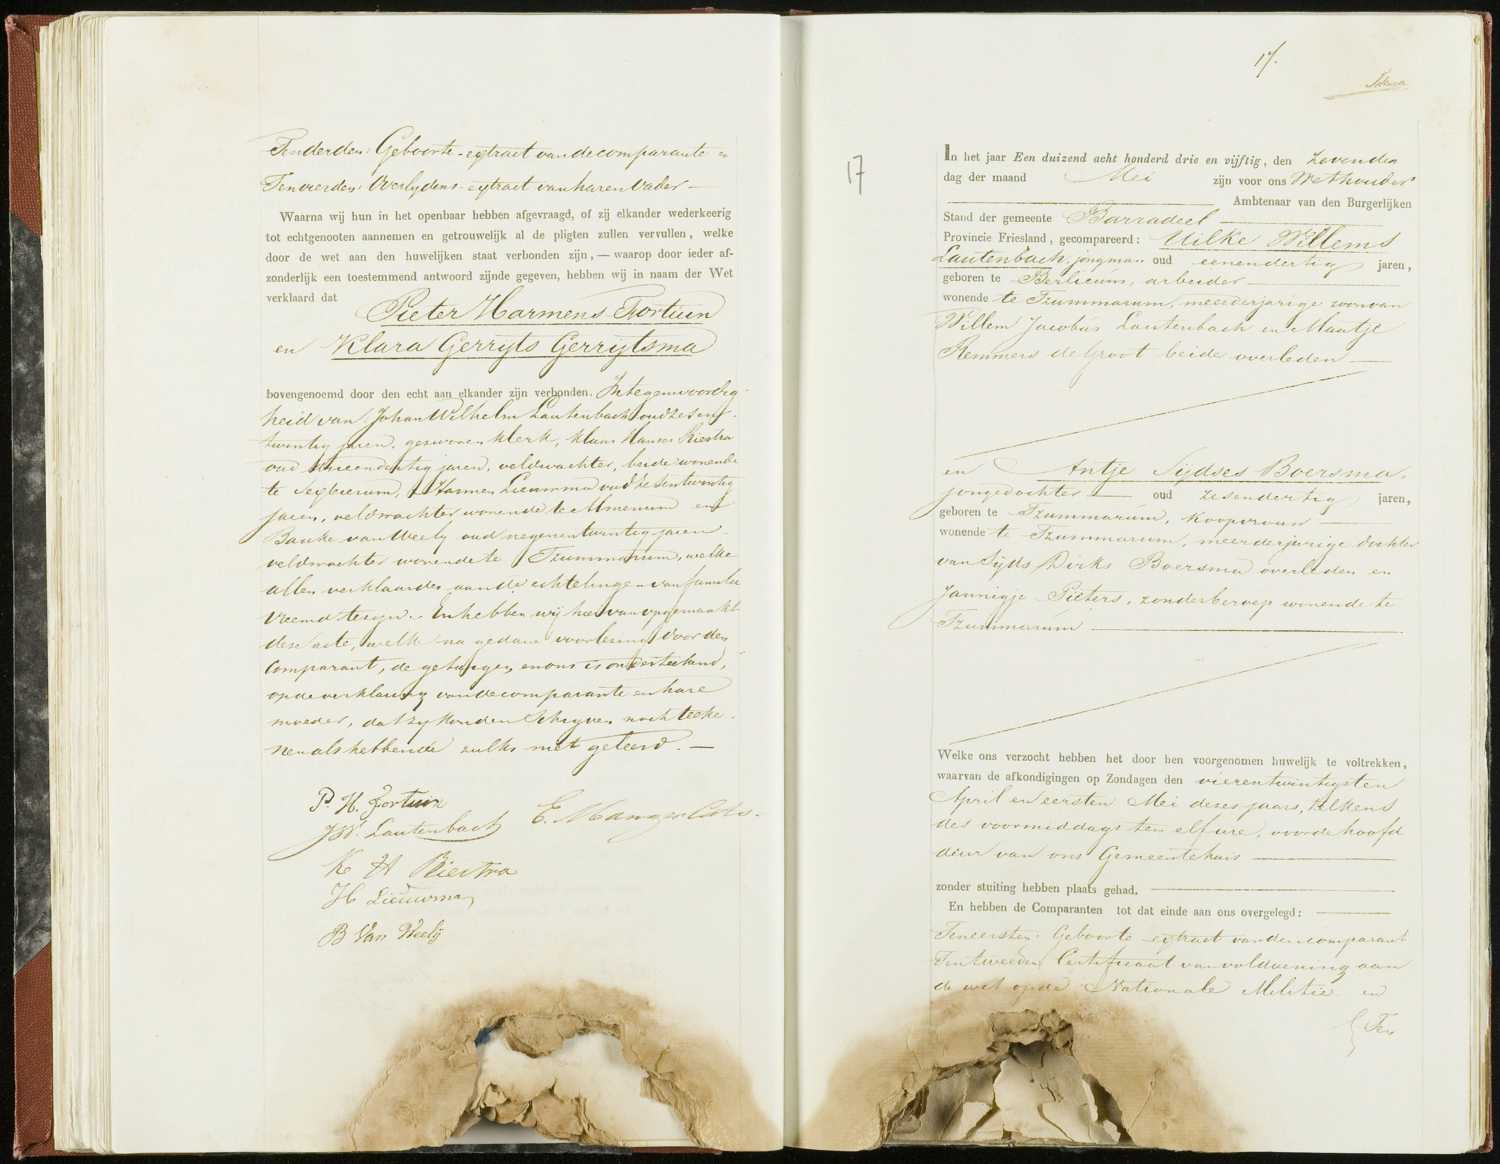 Tenderden: Geboorte-extract van de comparante en
Tenvierden: Overlydens-extract van haren Vader —
Waarna wij hun in het openbaar hebben afgevraagd, of zij elkander wederkeerig
tot echtgenooten aannemen en getrouwelijk al de pligten zullen vervullen, welke
door de wet aan den huwelijken staat verbonden zijn, — waarop door ieder af-
zonderlijk een toestemmend antwoord zijnde gegeven, hebben wij in naam der Wet
verklaard dat
Pieter Harmens Fortuin
en Klara Gerryts Gerrytsma
bovengenoemd door den echt aan elkander zijn verbonden. In tegenwoordig-
heid van Johan Wilhelm Lautenbach oud zesen-
twintig jaren, gezworen klerk, Klaas Hanses Riestra
oud drieendertig jaren, veldwachter, beide wonende
te Sexbierum, Harmen Lieuwma oud zesentwintig
jaren, veldwachter wonende te Almenum en
Bauke van Weely oud negenentwintig jaren
veldwachter wonende te Tzummarum, welke
allen verklaarden aan de echtelingen van familie
vreemd te zyn. En hebben wij hier van opgemaakt
deze acte, welke na gedane voorlezing door den
Comparant, de getuigen en ons is onderteekend,
op de verklaring van de comparante en hare
moeder, dat zy konden schryven noch teeke-
nen als hebbende zulks niet geleerd. —
P. H. Fortuin
JW. Lautenbach E. Manger Cats.
K H Riestra
H Lieuwma
B Van Weely
17.
17
In het jaar Een duizend acht honderd drie en vijftig, den Zevenden
dag der maand Mei zijn voor ons Wethouder
Ambtenaar van den Burgerlijken
Stand der gemeente Barradeel
Provincie Friesland, gecompareerd: Uilke Willems
Lautenbach, jongman oud eenendertig jaren,
geboren te Berlicum, arbeider
wonende te Tzummarum, meerderjarige zoon van
Willem Jacobus Lautenbach en Maatje
Remmers de Groot beide overleden —
en Antje Sijdses Boersma,
jongedochter — oud zesendertig jaren,
geboren te Tzummarum, Koopvrouw —
wonende te Tzummarum, meerderjarige dochter
van Sijds Dirks Boersma overleden en
Jannigje Pieters, zonder beroep wonende te
Tzummarum —
Welke ons verzocht hebben het door hen voorgenomen huwelijk te voltrekken,
waarvan de afkondigingen op Zondagen den vierentwintigsten
April en eersten Mei dezes jaars, telkens
des voormiddags ten elf ure, voor de hoofd
deur van ons Gemeentehuis —
zonder stuiting hebben plaats gehad.
En hebben de Comparanten tot dat einde aan ons overgelegd:
Ten eersten: Geboorte-extract van den comparant
Ten tweeden Certificaat van voldoening aan
de wet op de Nationale Militie en
Ten